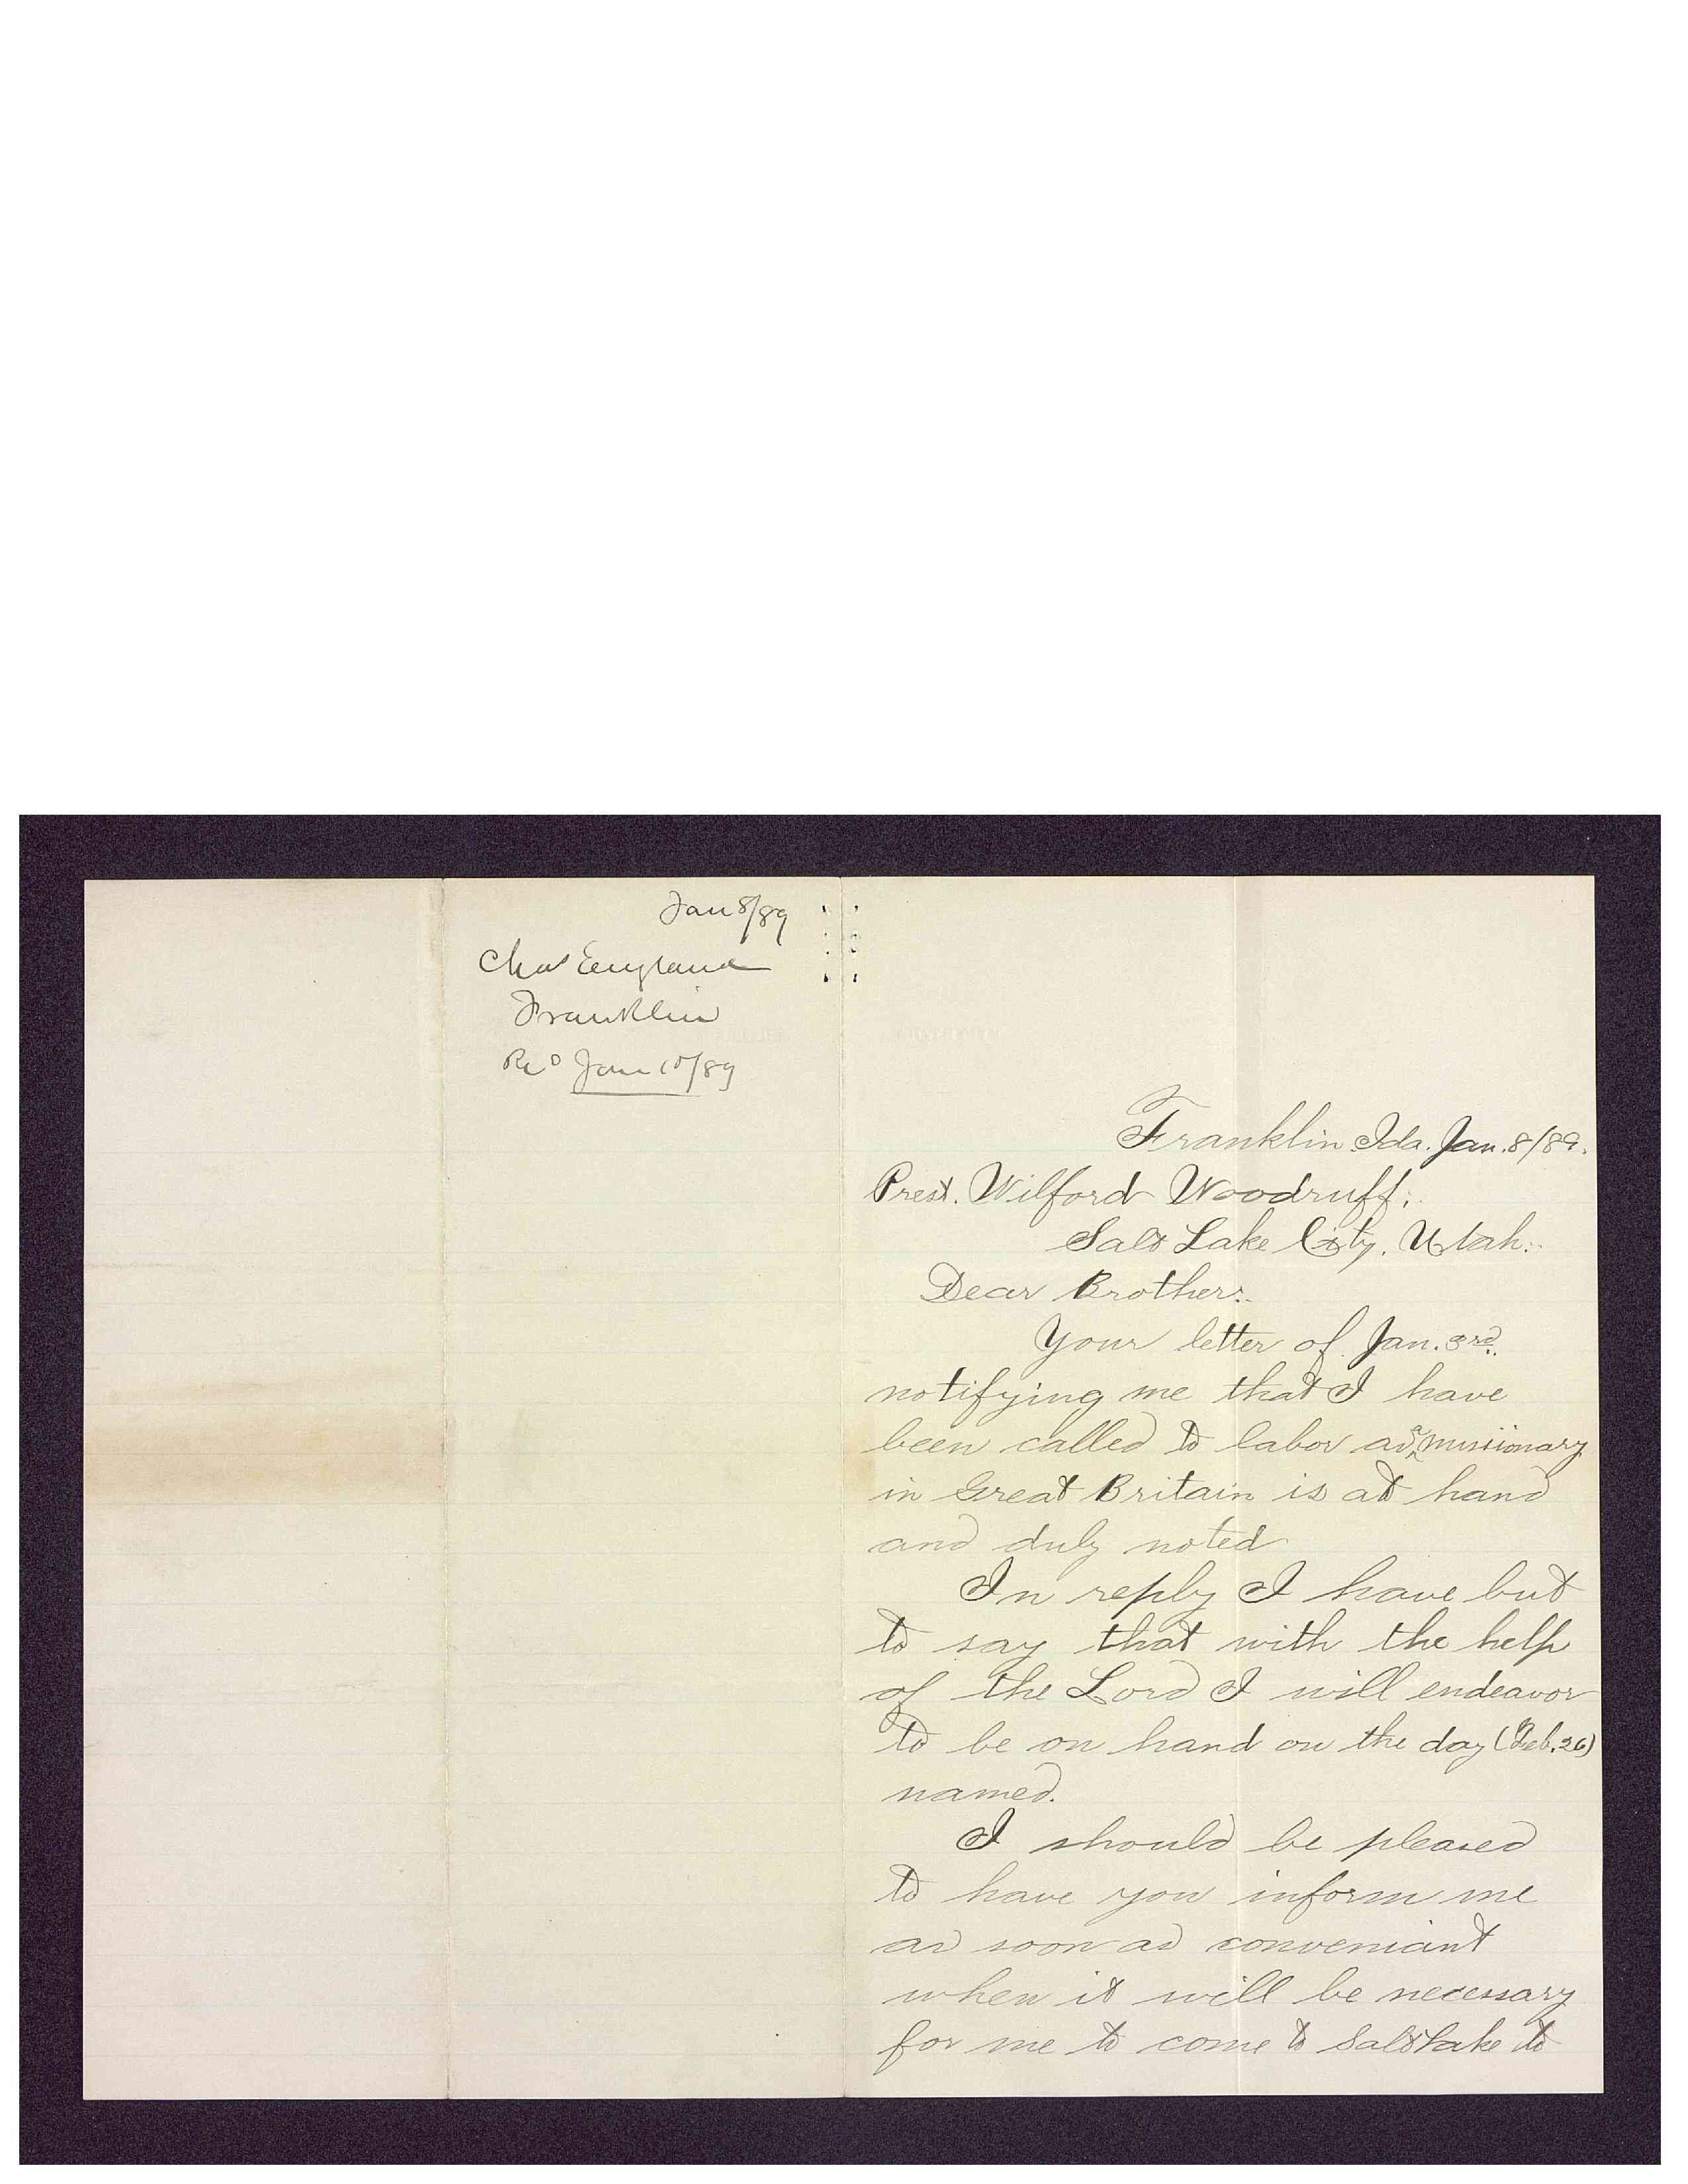 Jan 8/89
Chas England
Franklin
Recd Jan 10/89
Franklin Ida. Jan. 8/89.
Prest. Wilford Woodruff;
Salt Lake City, Utah.
Dear Brother:
Your letter of Jan. 3rd.
notifying me that I have
been called to labor as a missionary
in Great Britain is at hand
and duly noted
In reply I have but
to say that with the help
of the Lord I will endeavor
to be on hand on the day (Feb. 26)
named.
I should be pleased
to have you inform me
as soon as conveniant
when it will be necessary
for me to come to Salt Lake to